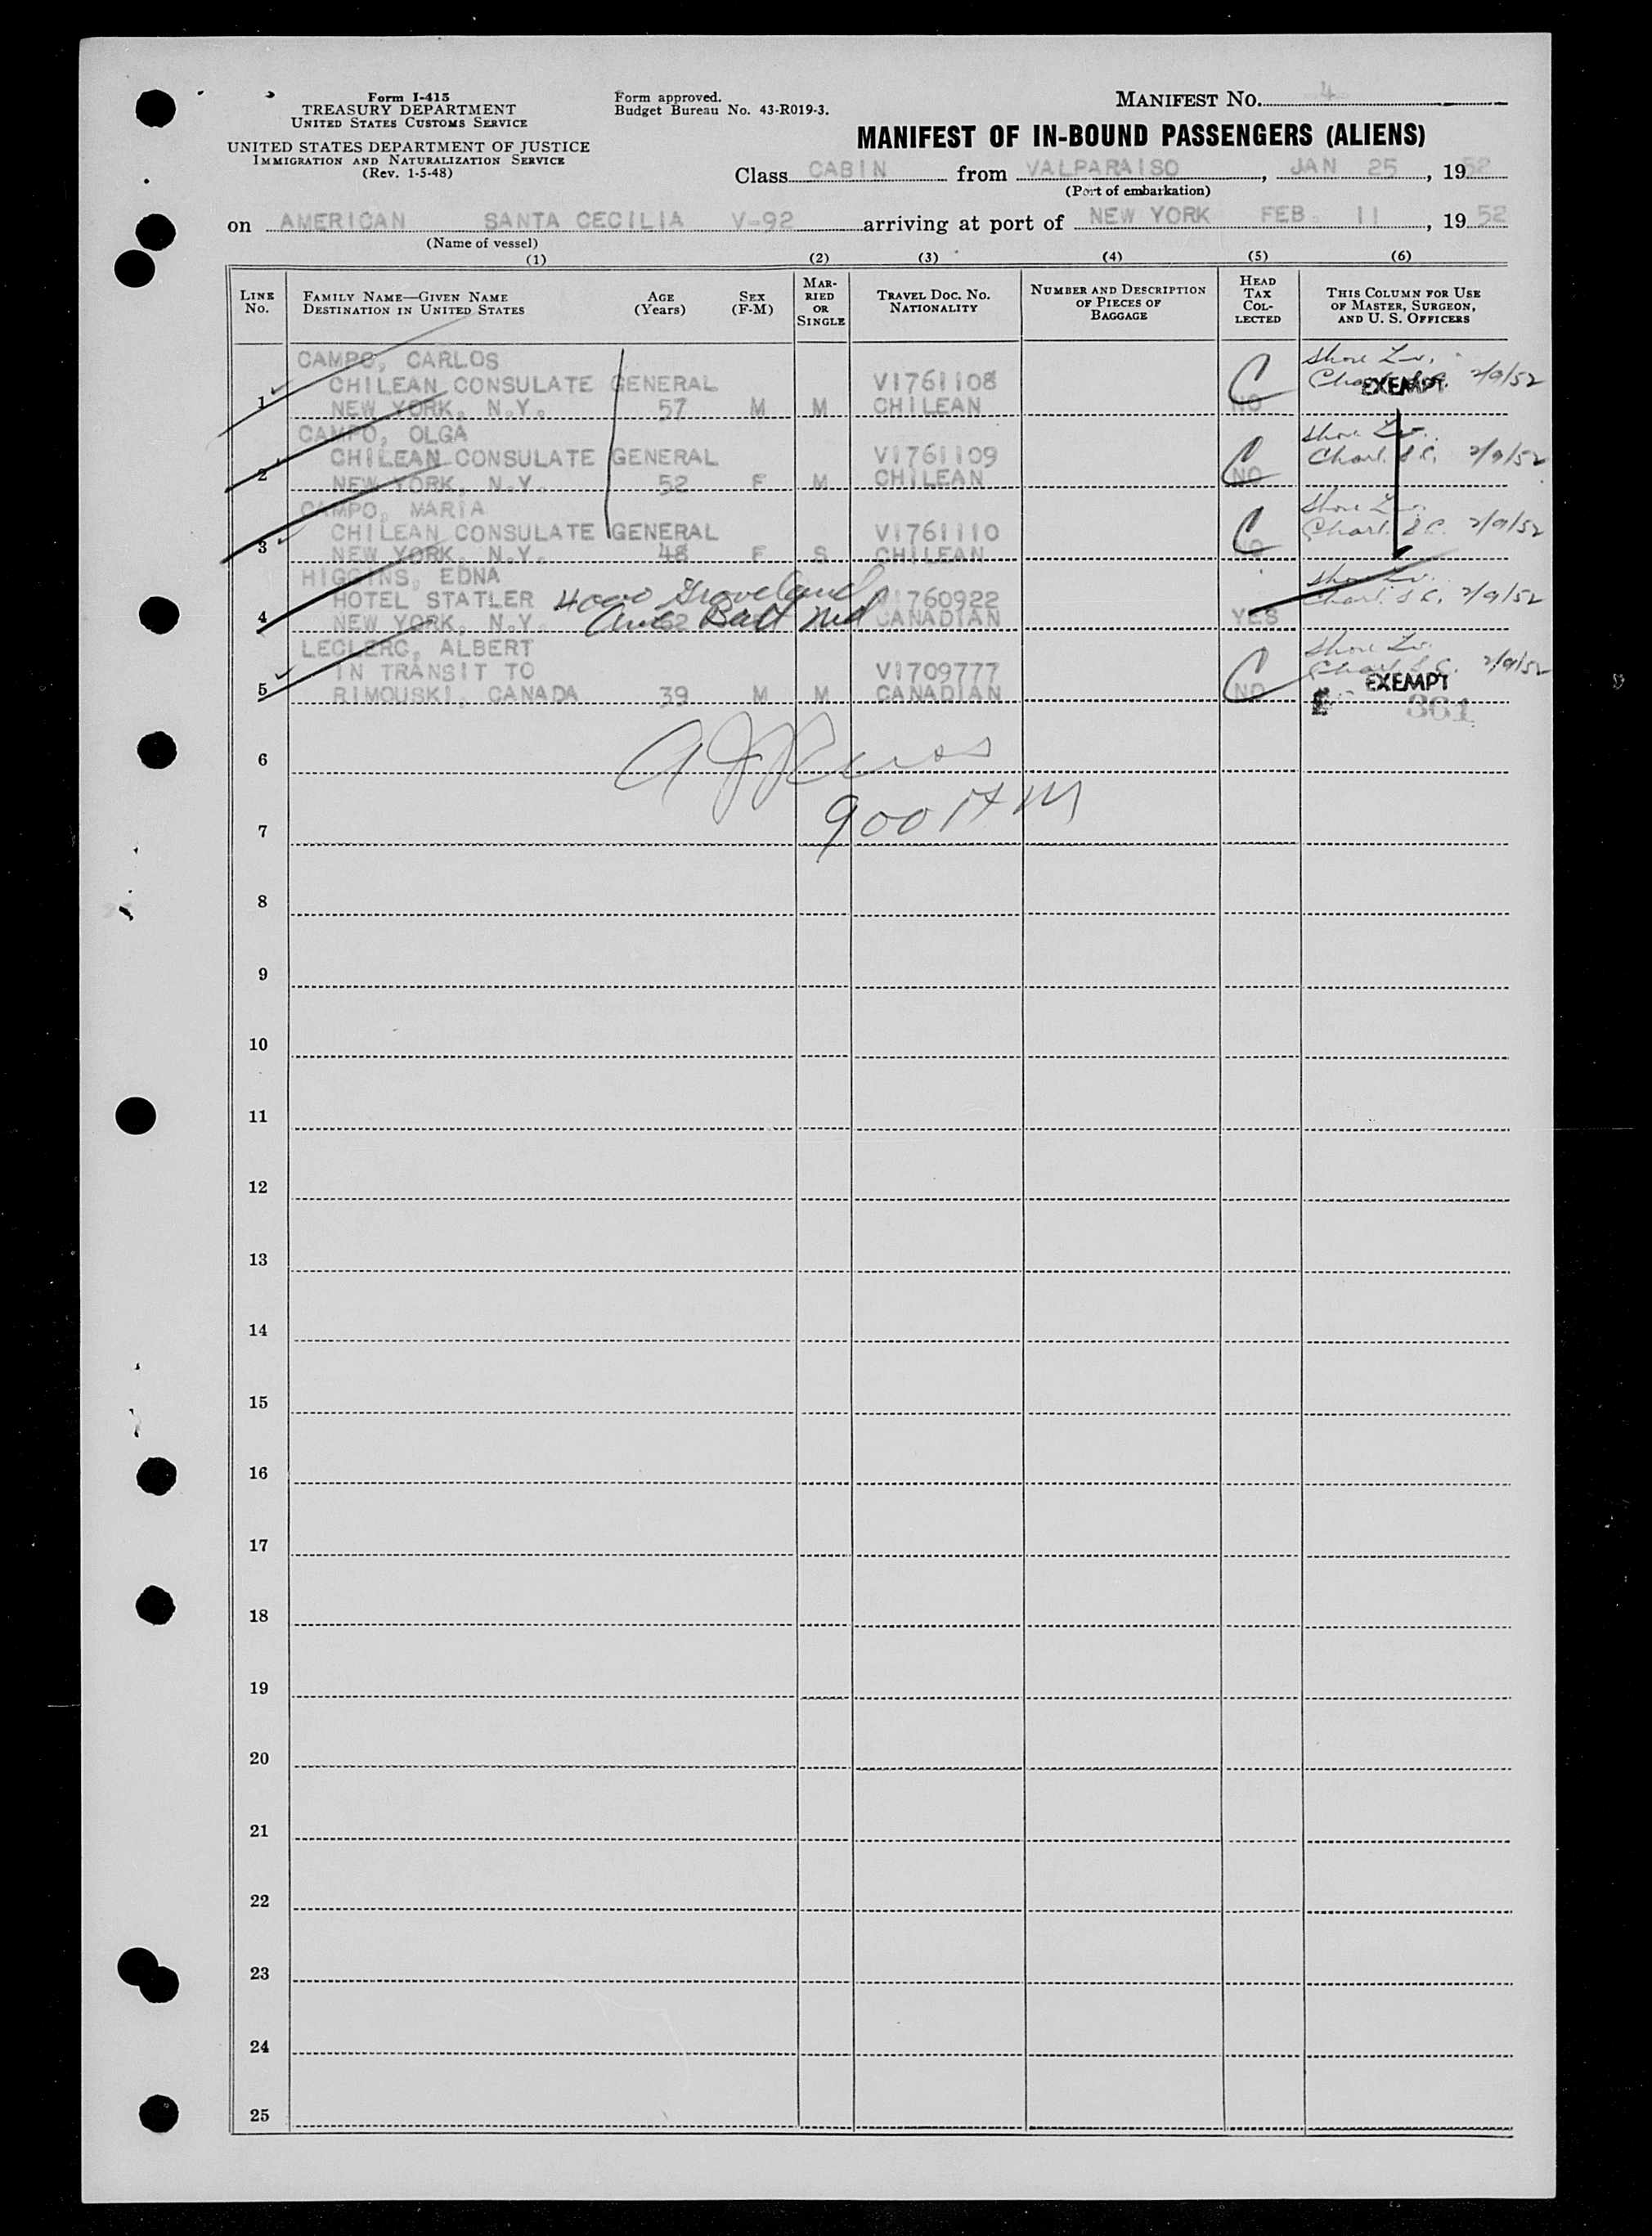 Form I-415
TREASURY DEPARTMENT
UNITED STATES CUSTOMS SERVICE
UNITED STATES DEPARTMENT OF JUSTICE
IMMIGRATION AND NATURALIZATION SERVICE
(Rev. 1-5-48)
Form approved.
Budget Bureau No. 43-R019-3.
MANIFEST NO. 4
MANIFEST OF IN-BOUND PASSENGERS (ALIENS)
Class CABIN from VALPARAISO, JAN 25, 1952
(Port of embarkation)
on AMERICAN SANTA CECILIA V-92 arriving at port of NEW YORK FEB. 11, 1952
(Name of vessel)
(1) (2) (3) (4) (5) (6)
LINE NO.
FAMILY NAME—GIVEN NAME
DESTINATION IN UNITED STATES
AGE (Years)
SEX (F-M)
MARRIED OR SINGLE
TRAVEL DOC. NO. NATIONALITY
NUMBER AND DESCRIPTION OF PIECES OF BAGGAGE
HEAD TAX COLLECTED
THIS COLUMN FOR USE OF MASTER, SURGEON, AND U. S. OFFICERS
CAMPO, CARLOS
CHILEAN CONSULATE GENERAL V1761108 C EXEMPT 2/9/52
1 NEW YORK, N.Y. 57 M M CHILEAN NO
CAMPO, OLGA
CHILEAN CONSULATE GENERAL V1761109 C Charl. S.C. 2/9/52
2 NEW YORK, N.Y. 52 F M CHILEAN NO
CAMPO, MARIA
CHILEAN CONSULATE GENERAL V1761110 C Charl. S.C. 2/9/52
3 NEW YORK, N.Y. 48 F S CHILEAN NO
HIGGINS, EDNA
HOTEL STATLER 4000 Groveland 1760922 Charl. S.C. 2/9/52
4 NEW YORK, N.Y. Ave 62 Balt Md CANADIAN YES
LECLERC, ALBERT
IN TRANSIT TO V1709777 C Charl. S.C. 2/9/52
5 RIMOUSKI, CANADA 39 M M CANADIAN NO EXEMPT
361
6
900 AM
7
8
9
10
11
12
13
14
15
16
17
18
19
20
21
22
23
24
25